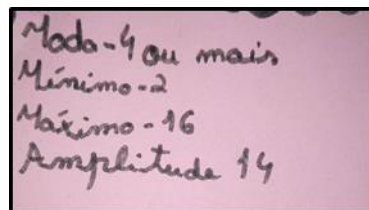 Moda-4 ou mais
Mínimo-2
Máximo-16
Amplitude 14